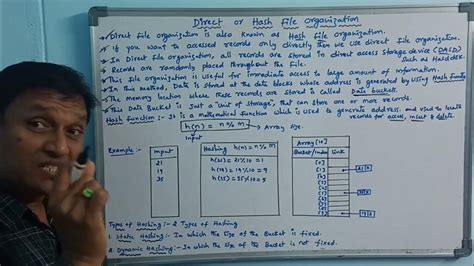 Direct or Hash File Organization
Direct file organization is also known as Hash file organization.
If you want to accessed records only directly then we use direct file organization.
In Direct file organization, all records are stored in direct access storage device (DASD)
Such as Hard disk.
Records are randomly placed throughout the File.
This file organization is useful for immediate access to large amount of information.
In this method, Data is stored at the data blocks whose address is generated by using Hash Function
The memory location where these records are stored is called Data buckets.
This Data Bucket is Just a "unit of storage", that can store one or more records.
Hash Function :- It is a mathematical function which is used to generate address and used to locate
records for access, insert & delete.
h(n) = n % m
Array Size.
Example :-
Input
21
19
35
Hashing h(n) = n % m
h(21) = 21 % 10 = 1
h(19) = 19 % 10 = 9
h(35) = 35 % 10 = 5
Array [10]
Bucket/index Link
[0]
[1]
[2]
[3]
[4]
[5]
[6]
[7]
[8]
[9]
Types of Hashing :- 2 Types of Hashing
1. Static Hashing :- In which the size of the Bucket is fixed.
2. Dynamic Hashing :- In which the size of the Bucket is not fixed.